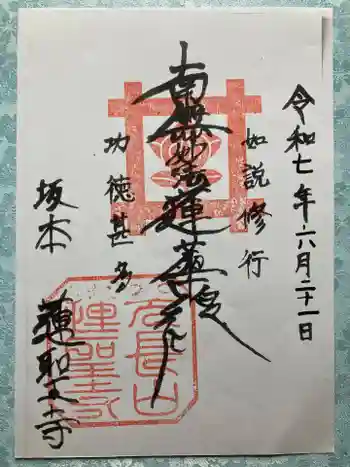 令和七年六月二十一日
如説修行
南無妙法蓮華経
功徳甚多
坂本
蓮聖寺